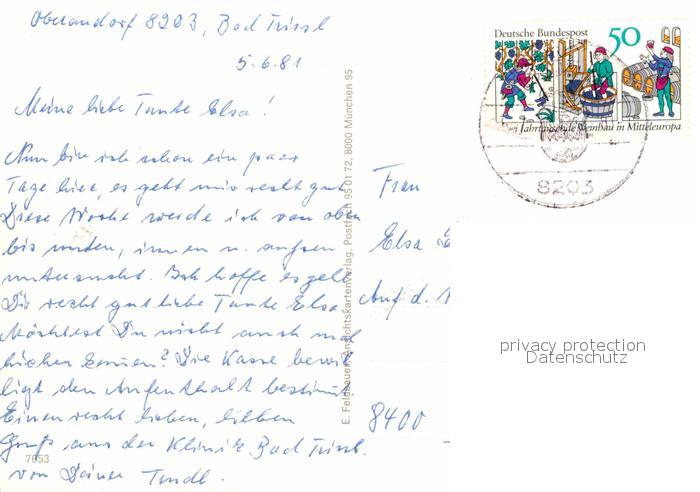 Oberaudorf 8203, Bad Trissl
5.6.81
Meine liebe Tante Elsa!
Nun bin ich schon ein paar
Tage hier, es geht mir recht gut
Diese Woche werde ich von oben
bis unten, innen u. außen
untersucht. Ich hoffe es geht
Dir recht gut liebe Tante Elsa
Möchtest Du nicht auch mal
hierher kommen? Die Kasse bewil
ligt den Aufenthalt bestimmt
Einen recht lieben, lieben
Gruß aus der Klinik Bad Trissl.
von Deiner Trudl.
7653
E. Feldbauer, Ansichtskartenverlag, Postfach 95 01 72, 8000 München 95
Frau
Elsa
Auf d.
8400
Deutsche Bundespost 50
Zwei Jahrtausende Weinbau in Mitteleuropa
8203
privacy protection
Datenschutz